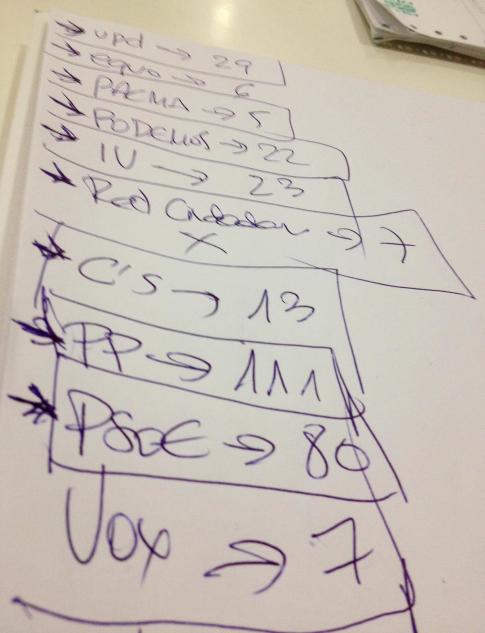 → upd → 29
→ equo → 6
→ PACMA → 5
→ PODEMOS → 22
→ IU → 23
→ Red Ciudadana → 7
X
→ C's → 13
→ PP → 111
→ PSOE → 80
Vox → 7